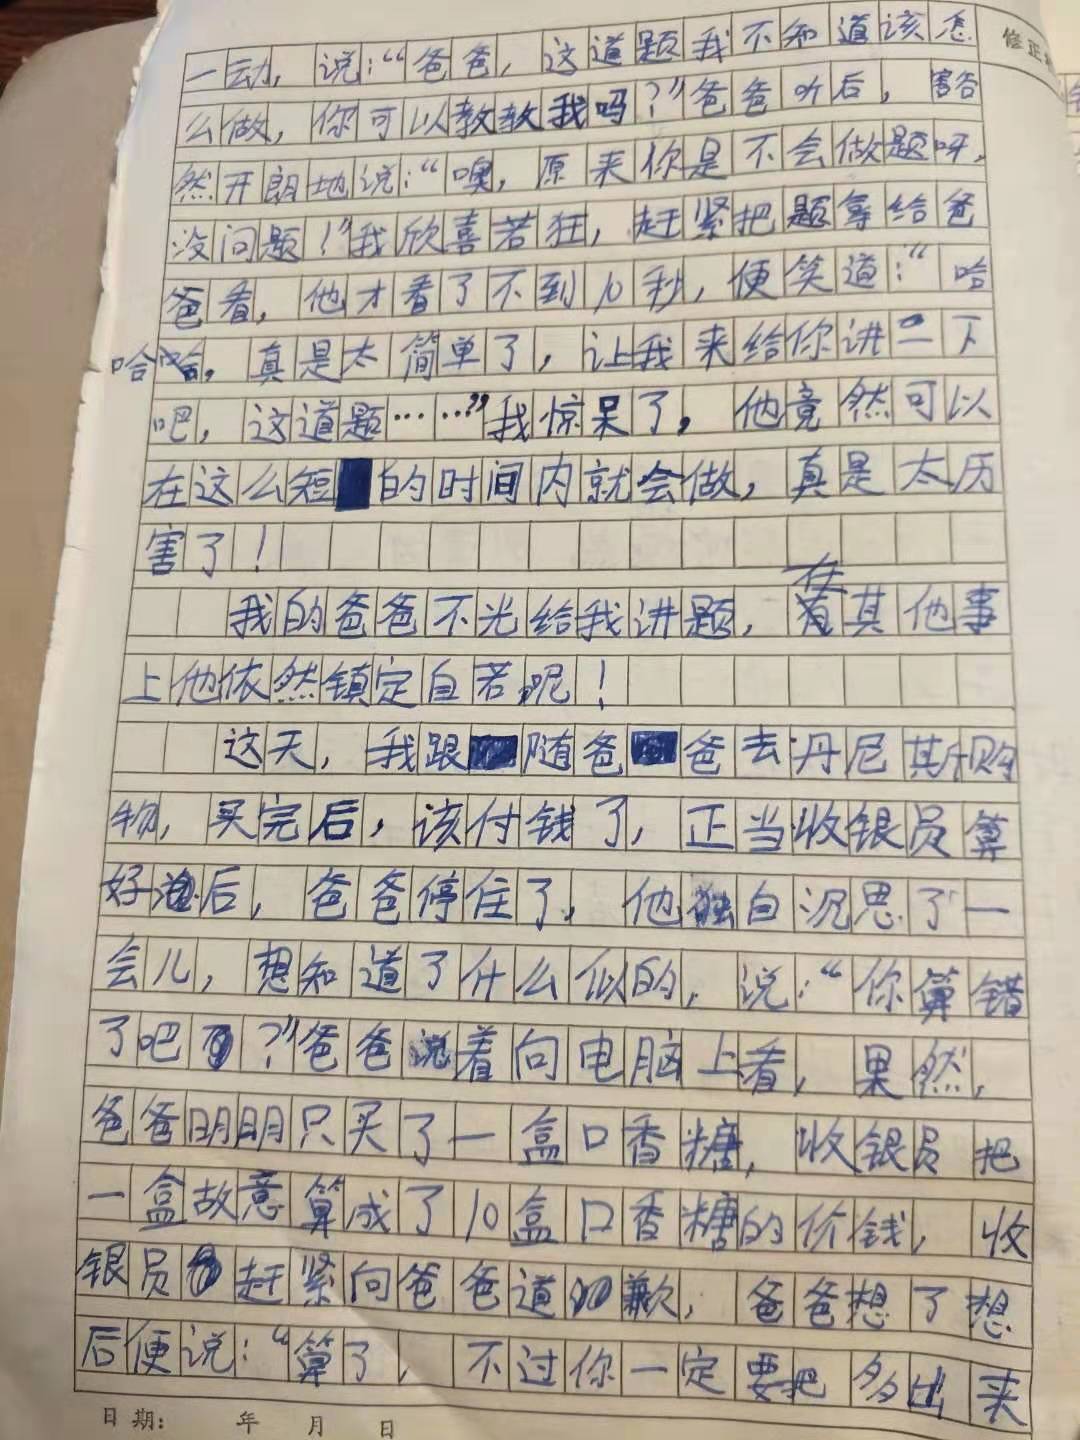 修正
一动，说：“爸爸，这道题我不知道该怎
么做，你可以教教我吗？”爸爸听后，豁
然开朗地说：“噢，原来你是不会做题呀，
没问题！”我欣喜若狂，赶紧把题拿给爸
爸看，他才看了不到10秒，便笑道：“哈
哈哈，真是太简单了，让我来给你讲一下
吧，这道题……”我惊呆了，他竟然可以
在这么短的时间内就会做，真是太历
害了！
我的爸爸不光给我讲题，在其他事
上他依然镇定自若呢！
这天，我跟随爸爸去丹尼斯购
物，买完后，该付钱了，正当收银员算
好后，爸爸停住了，他独自沉思了一
会儿，想知道了什么似的，说：“你算错
了吧？”爸爸说着向电脑上看，果然，
爸爸明明只买了一盒口香糖，收银员把
一盒故意算成了10盒口香糖的价钱，收
银员赶紧向爸爸道歉，爸爸想了想
后便说：“算了，不过你一定要把多出来
日期： 年 月 日